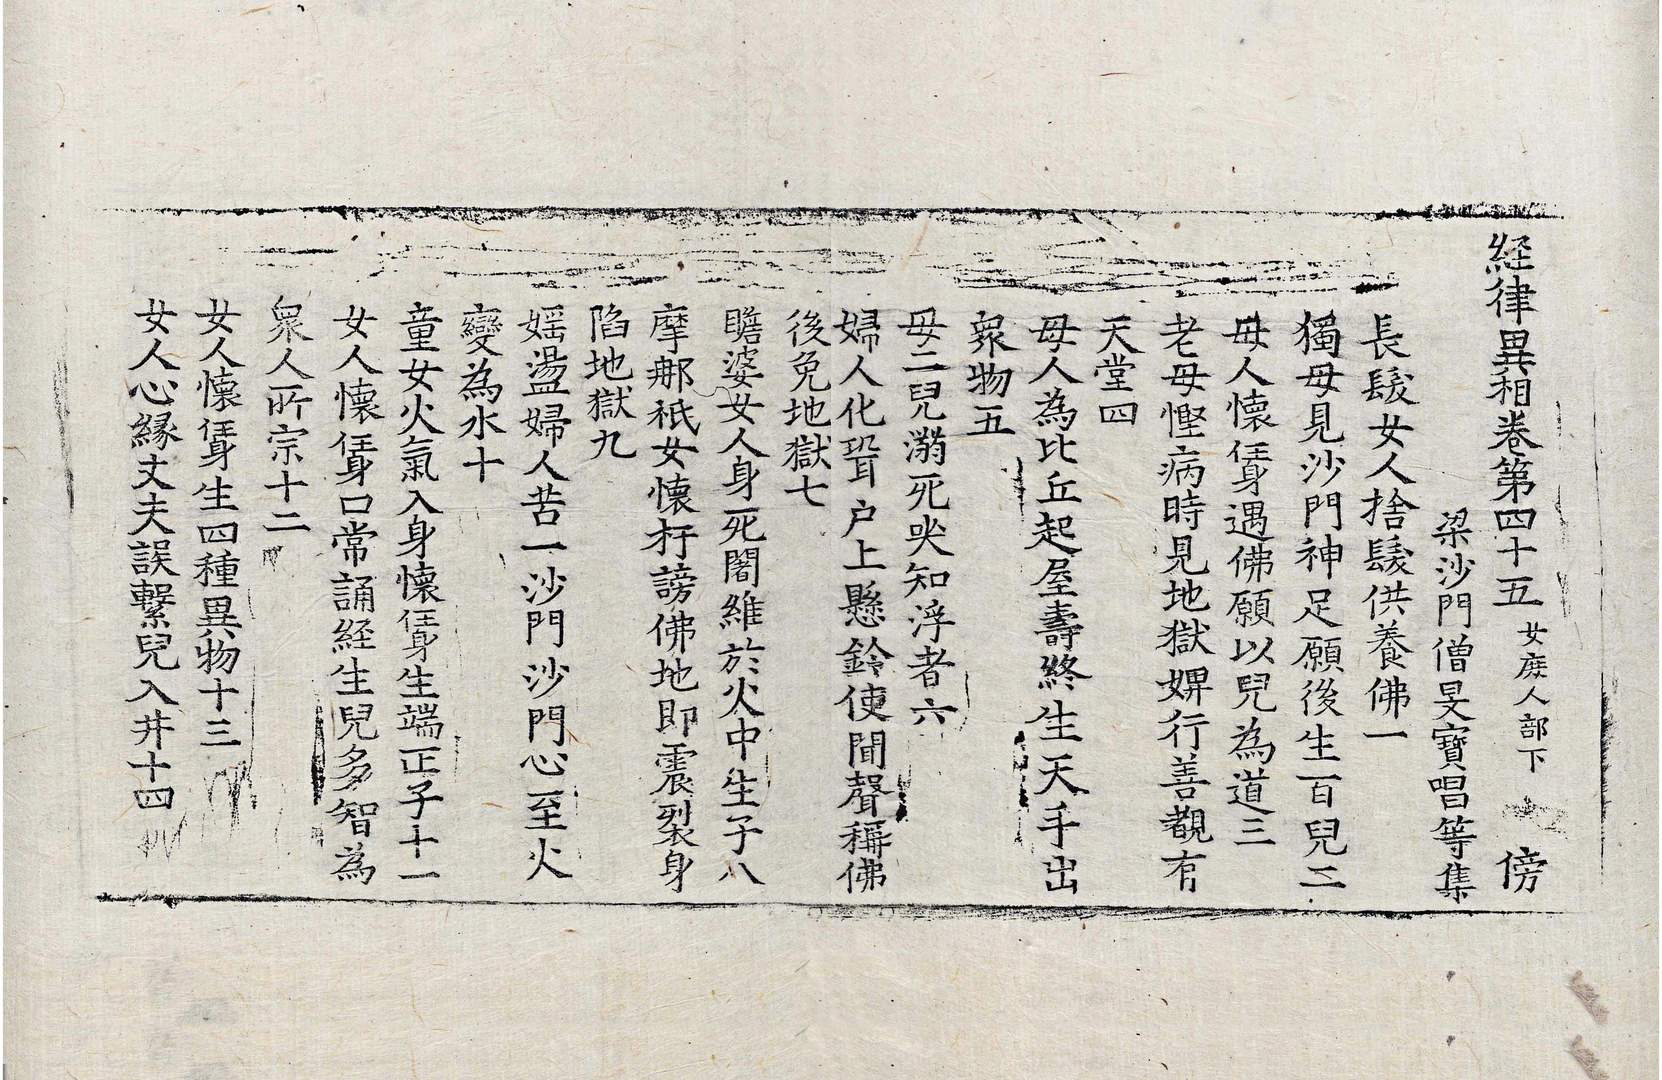 經律異相卷第四十五 女庶人部下 傍
梁沙門僧旻寶唱等集
長髮女人捨髮供養佛一
獨母見沙門神足願後生百兒二
母人懷㑗身遇佛願以兒為道三
老母慳病時見地獄婢行善覩有
天堂四
母人為比丘起屋壽終生天手出
衆物五
母二兒溺死哭知浮者六
婦人化聟戶上懸鈴使聞聲稱佛
後免地獄七
瞻婆女人身死闍維於火中生子八
摩那祇女懷杅謗佛地即震裂身
陷地獄九
婬蕩婦人苦一沙門沙門心至火
變為水十
童女火氣入身懷㑗身生端正子十一
女人懷㑗身口常誦經生兒多智為
衆人所宗十二
女人懷㑗身生四種異物十三
女人心緣丈夫誤繫兒入井十四